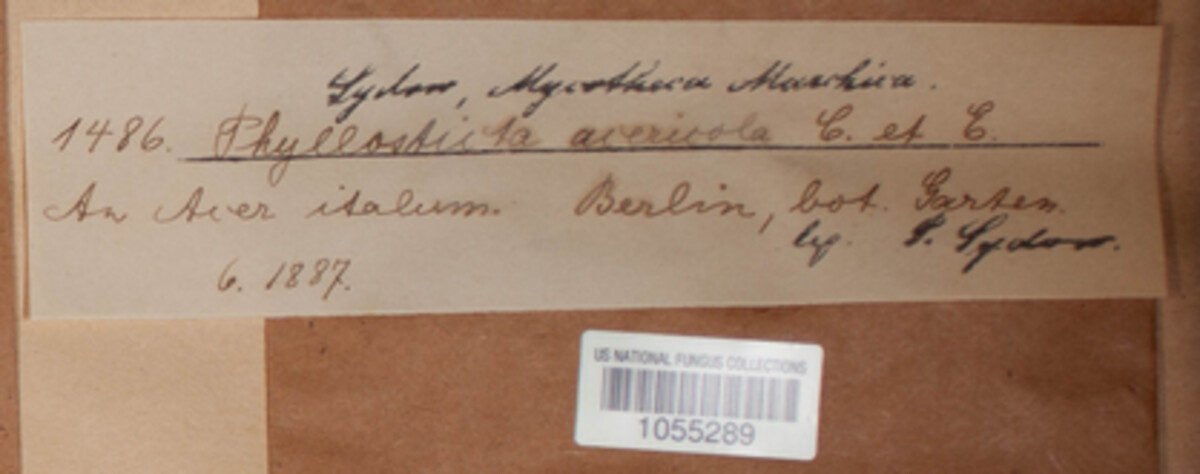 Sydow, Mycotheca Marchica.
1486. Phyllosticta acericola C. et E.
An Acer italum. Berlin, bot. Garten.
lg. P. Sydow.
6. 1887.
US NATIONAL FUNGUS COLLECTIONS
1055289